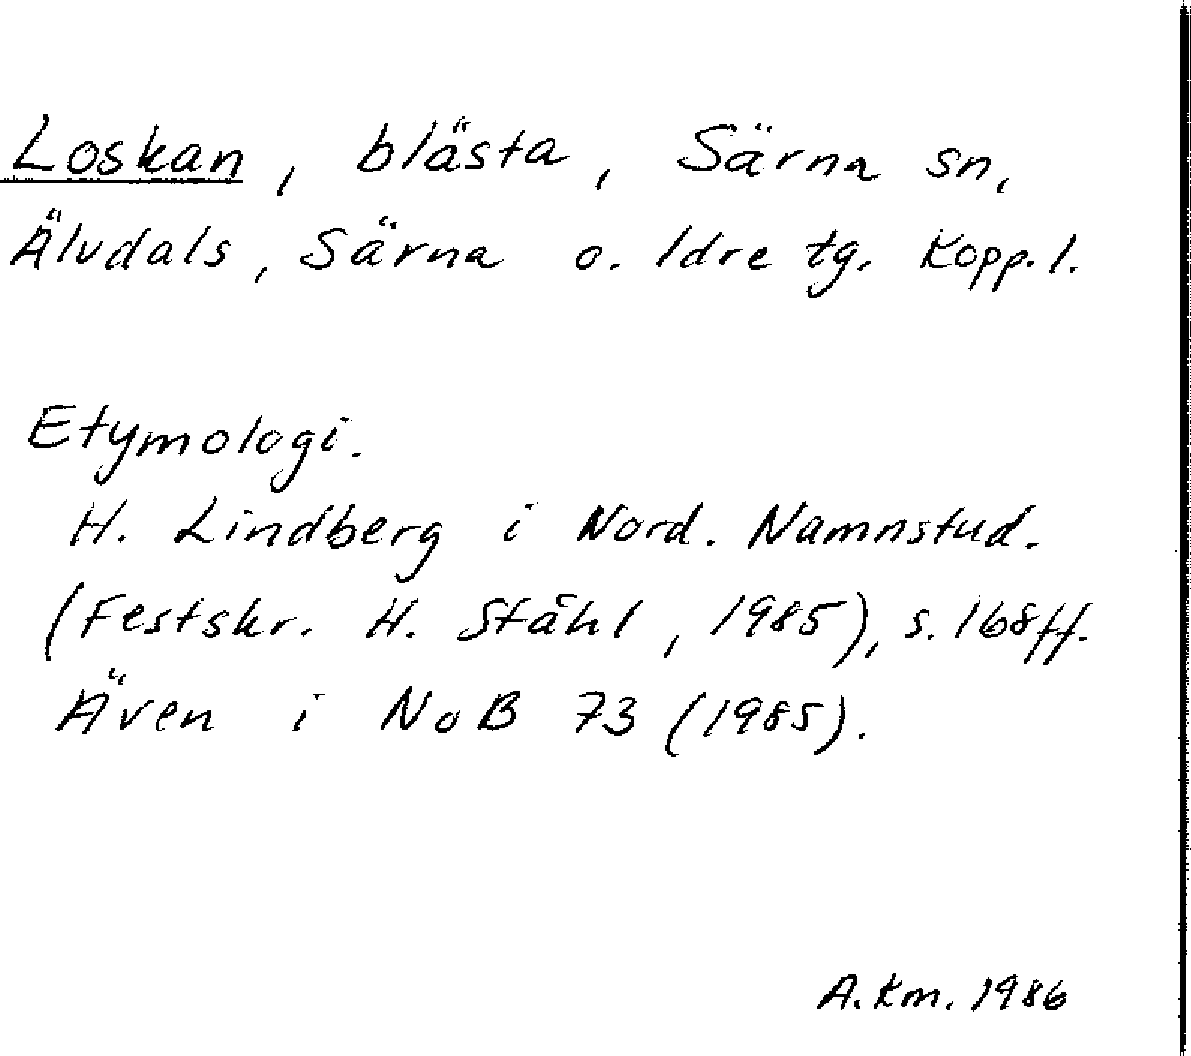 Loskan, blästa, Särna sn,
Älvdals, Särna o. Idre tg. Kopp. l.
Etymologi.
H. Lindberg i Nord. Namnstud.
(Festskr. H. Ståhl, 1985), s. 168ff.
Även i NoB 73 (1985).
A. Km. 1986